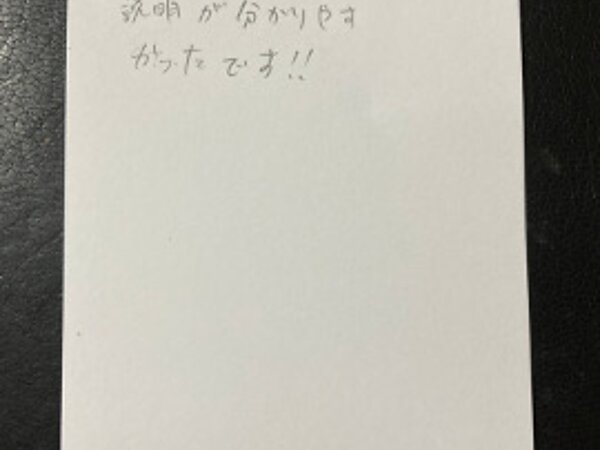 説明が分かりやす
かったです!!